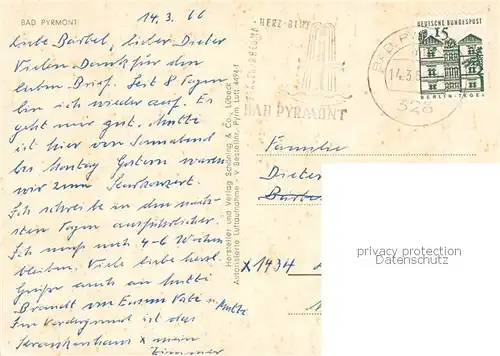 BAD PYRMONT
14.3.66
Liebe Bärbel, lieber Dieter
Vielen Dank für den
lieben Brief. Seit 8 Tagen
bin ich wieder auf. Es
geht mir gut. Mutti
ist hier von Sonnabend
bis Montag Gestern waren
wir zum Kurkonzert.
Ich schreibe in den näch-
sten Tagen ausführlicher.
Ich muß noch 4-6 Wochen
bleiben. Viele liebe herzl.
Grüße auch an Mutti
Brandt von Eurem Vati u Mutti
Im Vordergrund ist das
Krankenhaus x mein
Zimmer
Hersteller und Verlag Schöning & Co., Lübeck
Autorisierte Luftaufnahme · V. Besteller: Pyrm Luft 4494 f
HERZ
BAD PYRMONT
BAD PY
14.3.6
328
DEUTSCHE BUNDESPOST
15
BERLIN-TEGEL
Familie
Dieter
Bärbel
x 1434
privacy protection
Ansichtskarten-Center